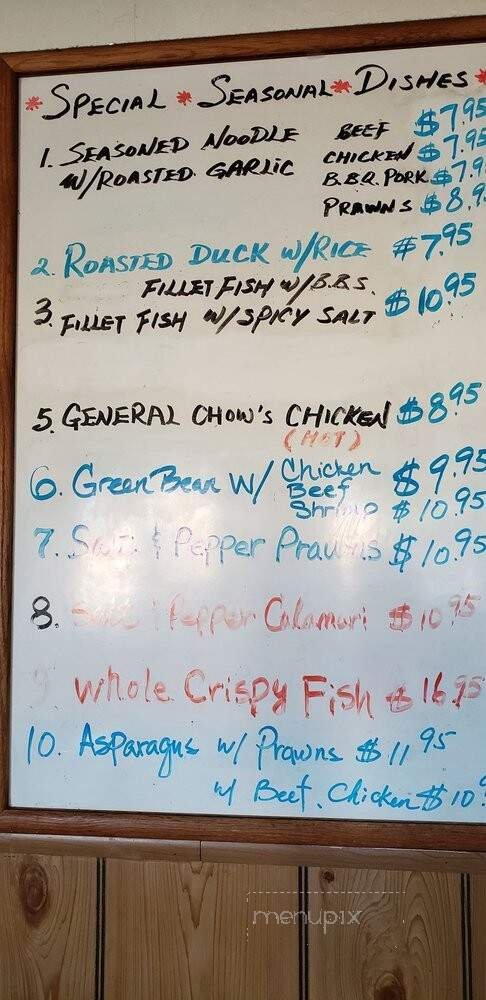 * SPECIAL * SEASONAL * DISHES *
1. SEASONED NOODLE BEEF $7.95
W/ROASTED GARLIC CHICKEN $7.95
B.B.Q. PORK $7.9
PRAWNS $8.9
2. ROASTED DUCK W/RICE $7.95
FILLET FISH W/B.B.S.
3. FILLET FISH W/SPICY SALT $10.95
5. GENERAL CHOW'S CHICKEN $8.95
(HOT)
6. Green Bean W/ Chicken $9.95
Beef
Shrimp $10.95
7. Salt & Pepper Prawns $10.95
8. Salt & Pepper Calamari $10.95
9 whole Crispy Fish $16.95
10. Asparagus w/ Prawns $11.95
w/ Beef, Chicken $10.9
menupix